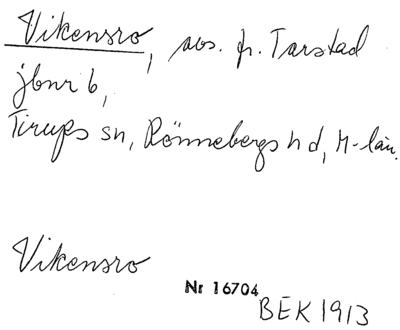 Vikensro, avs. fr. Tarstad
jbnr 6,
Tirups sn, Rönnebergs hd, M-län.
Vikensro
Nr 16704
BEK 1913